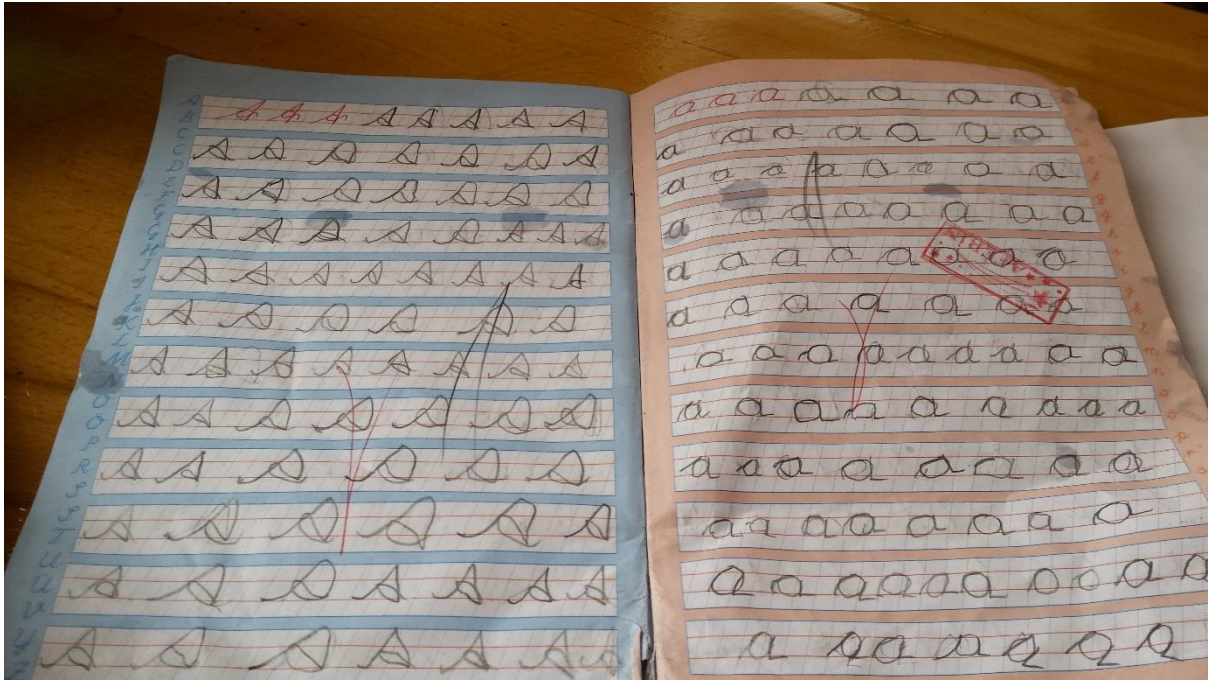 A A A A A A A A
A A A A A A A
A A A A A A A
A A A A A A A A
A A A A A A A A A
A A A A A A
A A A A A A A A
A A A A A A A
A A A A A A
A A A A A A
A A A A A A A
A A A A A A A
a a a a a a a
a a a a a a a
a a a a a a a a
a a a a a a a a
a a a a a a a a
AFERİN
a a a a a a a
a a a a a a a a a
a a a a a a a a a
a a a a a a a a
a a a a a a a a
a a a a a a a a a a
a a a a a a a